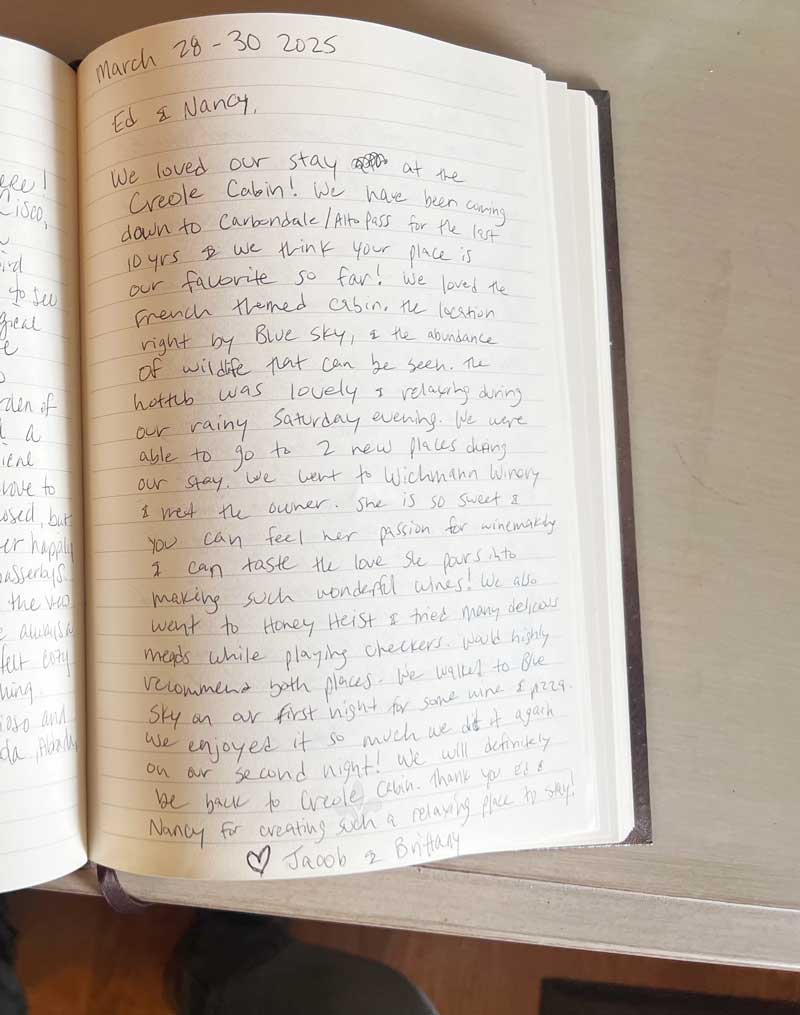 ere!
Cisco,
ird
to see
gical
rden of
d a
love to
osed, but
er happily
passerbys.
the view
e always a
felt cozy
hing.
and
da,
March 28-30 2025
Ed & Nancy,
We loved our stay at the
Creole Cabin! We have been coming
down to Carbondale/Alto Pass for the last
10 yrs & we think your place is
our favorite so far! We loved the
French themed cabin, the location
right by Blue Sky, & the abundance
of wildlife that can be seen. The
hottub was lovely & relaxing during
our rainy Saturday evening. We were
able to go to 2 new places during
our stay. We went to Wichmann Winery
& meet the owner. She is so sweet &
you can feel her passion for winemaking
& can taste the love she pours into
making such wonderful wines! We also
went to Honey Heist & tried many delicious
meads while playing checkers. Would highly
recommend both places. We walked to Blue
Sky on our first night for some wine & pizza.
We enjoyed it so much we did it again
on our second night! We will definitely
be back to Creole Cabin. Thank you Ed &
Nancy for creating such a relaxing place to stay!
♡ Jacob & Brittany